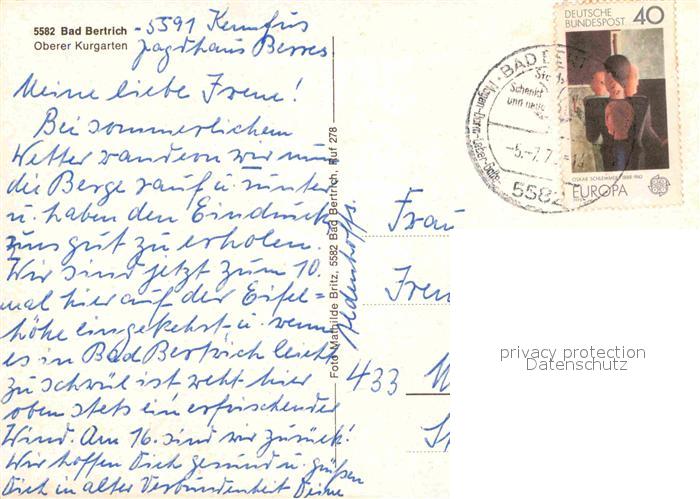 5582 Bad Bertrich - 5591 Kennfus
Oberer Kurgarten Jagdhaus Berres
Meine liebe Irene!
Bei sommerlichem
Wetter wandern wir nun
die Berge rauf u. runter
u. haben den Eindruck
uns gut zu erholen.
Wir sind jetzt zum 10.
mal hier auf der Eifel=
höhe eingekehrt u. wenn
es in Bad Bertrich leicht
zu schwül ist weht hier
oben stets ein erfrischender
Wind. Am 16. sind wir zurück!
Wir hoffen Dich gesund u. grüßen
Dich in alter Verbundenheit Deine
Foto Mathilde Britz, 5582 Bad Bertrich, Ruf 278
DEUTSCHE
BUNDESPOST 40
OSKAR SCHLEMMER 1888-1943
EUROPA
BAD BERT
Schenkt
und neue
Magen-Darm-Leber-Galle
-5.-7.7
5582
Frau
Iren
433 M
privacy protection
Datenschutz